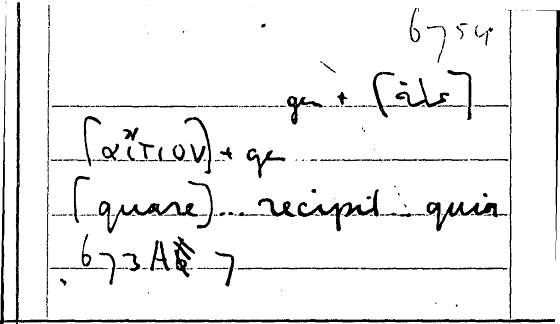 6754
gen + [als]
[αἴτιον] + gen
[quare] ... recipit : quia
673A 7